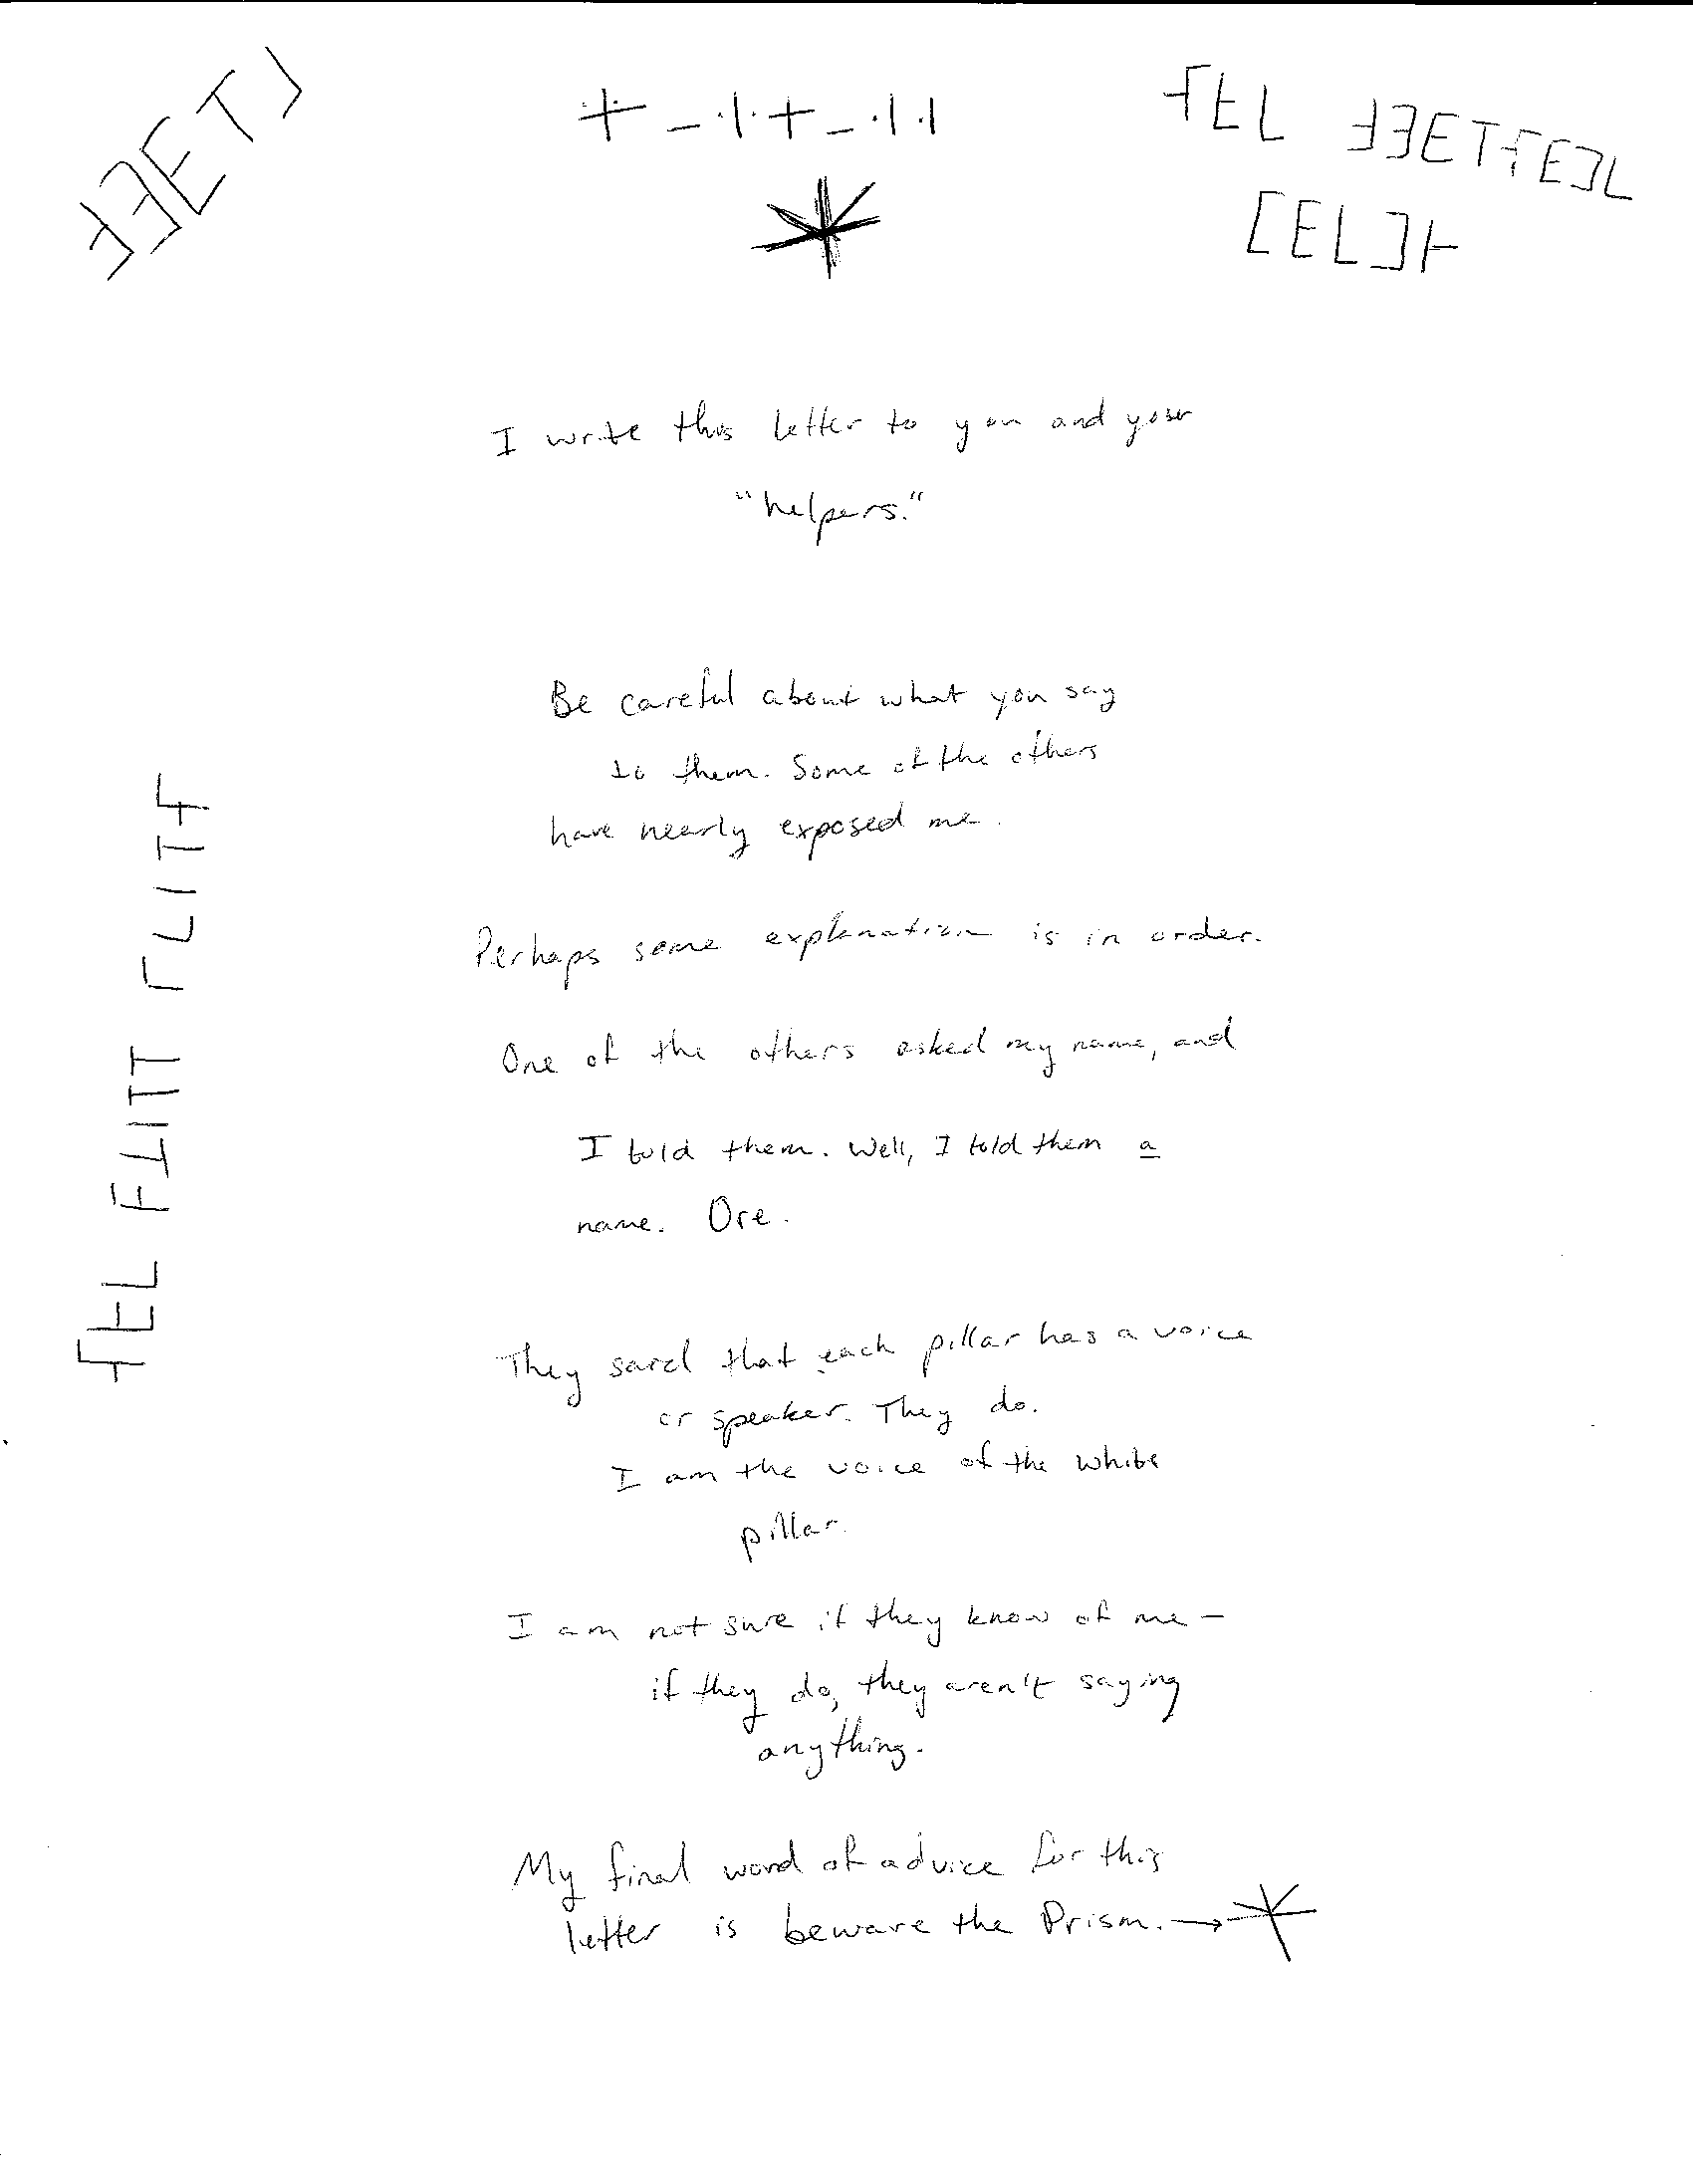 I write this letter to you and your
"helpers."
Be careful about what you say
to them. Some of the others
have nearly exposed me.
Perhaps some explanation is in order.
One of the others asked my name, and
I told them. Well, I told them a
name. Ore.
They said that each pillar has a voice
or speaker. They do.
I am the voice of the white
pillar.
I am not sure if they know of me –
if they do, they aren't saying
anything.
My final word of advice for this
letter is beware the Prism. →